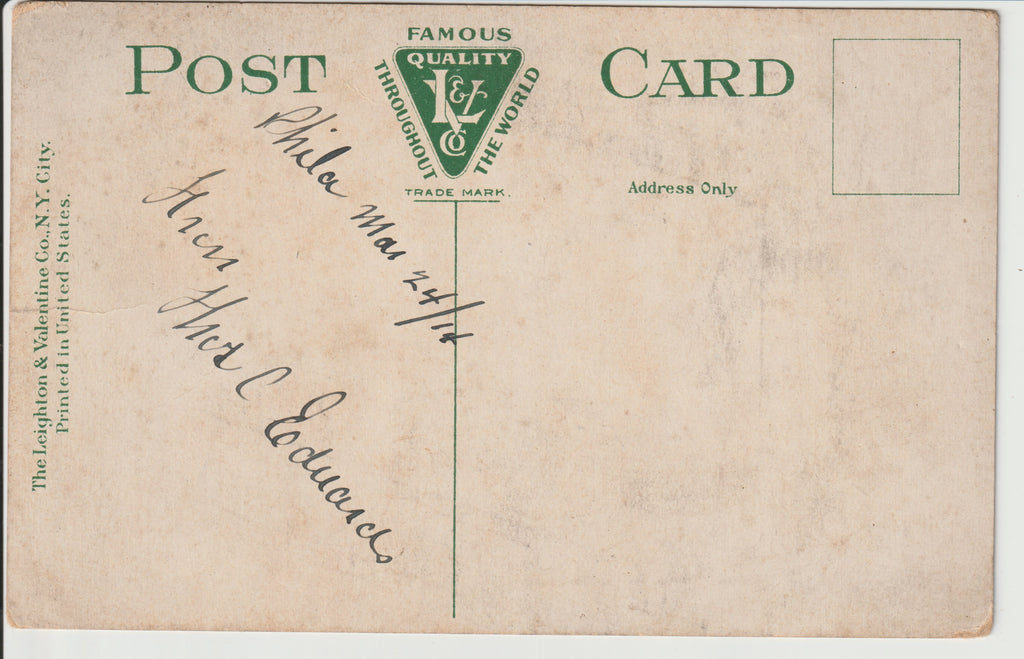 POST CARD
FAMOUS
QUALITY
THROUGHOUT
THE WORLD
L & V
Co
TRADE MARK.
Address Only
The Leighton & Valentine Co., N.Y. City.
Printed in United States.
Phila Mar 24/14
From
Thos C Edwards